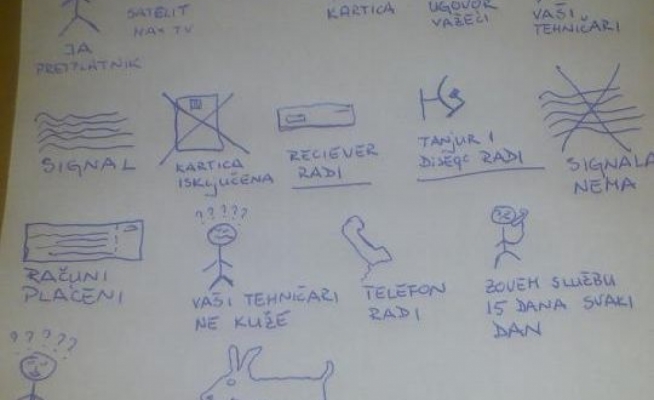 SATELIT
NAX TV
JA
PRETPLATNIK
KARTICA
UGOVOR
VAŽEĆI
VAŠI
TEHNIČARI
SIGNAL
KARTICA
ISKLJUČENA
RECIEVER
RADI
TANJUR I
DISEQC RADI
SIGNALA
NEMA
RAČUNI
PLAĆENI
? ? ? ? ?
VAŠI TEHNIČARI
NE KUŽE
TELEFON
RADI
ZOVEM SLUŽBU
15 DANA SVAKI
DAN
? ? ? ? ?